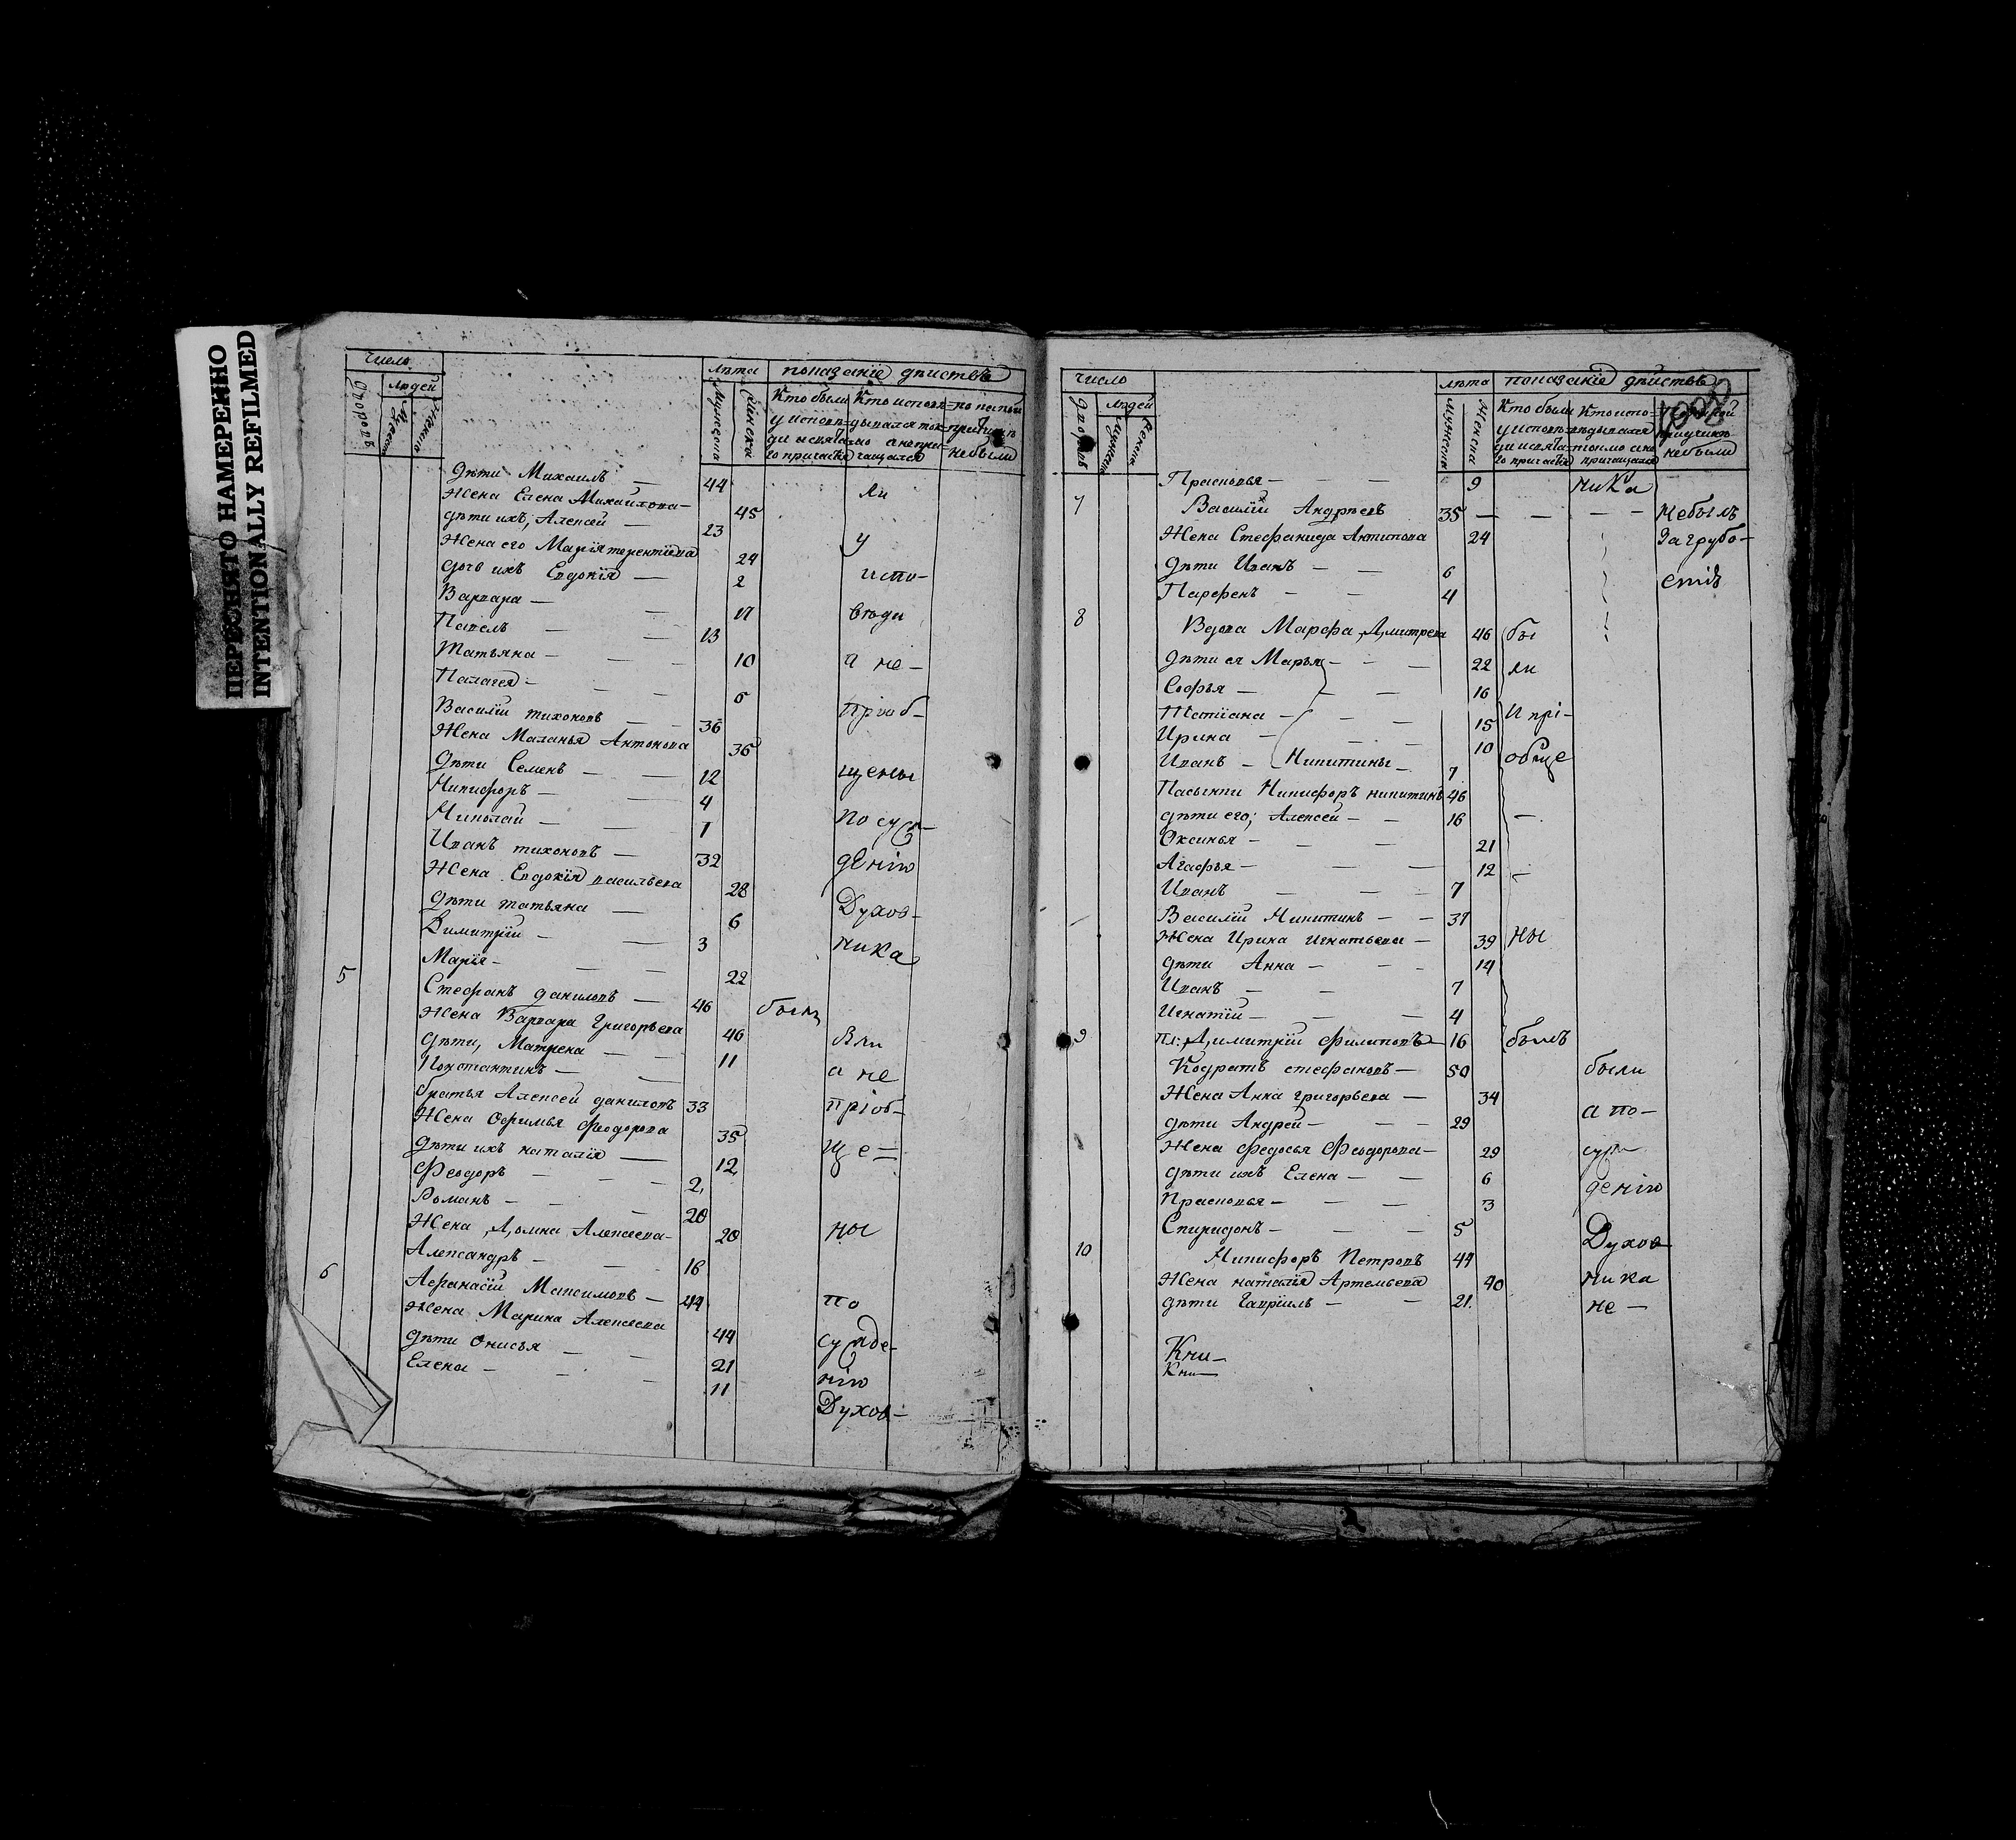 ПЕРЕСНЯТО НАМЕРЕННО
INTENTIONALLY REFILMED
число
людей
лѣта показанїе дѣйствъ
Кто были у исповѣди и святаго причастїя
Кто исповѣдывался токмо а не причащался
по какой причинѣ не были
дѣти Михаилъ — 44
Жена Елена Михайлова — 45 ли
дѣти ихъ, Алексей — 23
Жена его Марїя терентїева 24 у
дочь ихъ Евдокїя — 2 испо-
Варвара — 17
Павелъ — 13 вѣди
Татьяна — 10 а не-
Палагея — 6
Василїй тихоновъ — 36 прїоб-
Жена Маланья Антонова 36
дѣти Семенъ — 12 щены
Никифоръ — 4
Николай — 1 по суж-
Иванъ тихоновъ — 32
Жена Евдокїя васильева 28 денїю
дѣти татьяна — 6 Духов-
Димитрїй — 3 ника
Марїя — 22
5 Стефанъ даниловъ — 46 были
Жена Варвара Григорьева 46
дѣти, Матрена — 11
Константинъ — а не
братья Алексей даниловъ 33 прїоб-
Жена Офимья Феодорова 35
дѣти ихъ наталїя — 12 ще=
Феодоръ — 2
Романъ — 20
Жена Домна Алексеева — 20 ны
Александръ — 16
6 Афанасїй Максимовъ — 44 по
Жена Марина Алексеева 44
дѣти Онисья — 21 сужде-
Елена — 11 нїю
Духов-
число
людей
лѣта показанїе дѣйствъ
Кто были у исповѣди и святаго причастїя
Кто исповѣдывался токмо а не причащался
по какой причинѣ не были
Прасковья — 9 ника
7 Василїй Андреевъ 35 — — — не былъ
Жена Стефанида Антипова 24 За грубо-
дѣти Иванъ — 6
Парфенъ — 4 стїю
8 Вдова Марфа Димитрева 46 бы
дѣти ея Марья — 22 ли
Софья — 16
Татїана — 15 и прї-
Ирина — 10
Иванъ — Никитины — 7 обще
Пасынки Никифоръ никитинъ 46
дѣти его, Алексей — 16 —
Оксинья — 21
Агафья — 12 —
Иванъ — 7
Василїй Никитинъ — 37
Жена Ирина игнатьева — 39 ны
дѣти Анна — 14
Иванъ — 7
Игнатїй — 4
9 Димитрїй Филиповъ — 16 былъ
Кодратъ стефановъ — 50 были
Жена Анна григорьева — 34
дѣти Андрей — 29 а по-
Жена федосья Феодорова — 29 суж-
дѣти ихъ Елена — 6
Прасковья — 3 денїю
Спиридонъ — 5
Духов-
10 Никифоръ Петровъ 44
Жена наталїя Артемьева 40 ника
дѣти Гаврїилъ — 21 не —
Кни-
Кни-